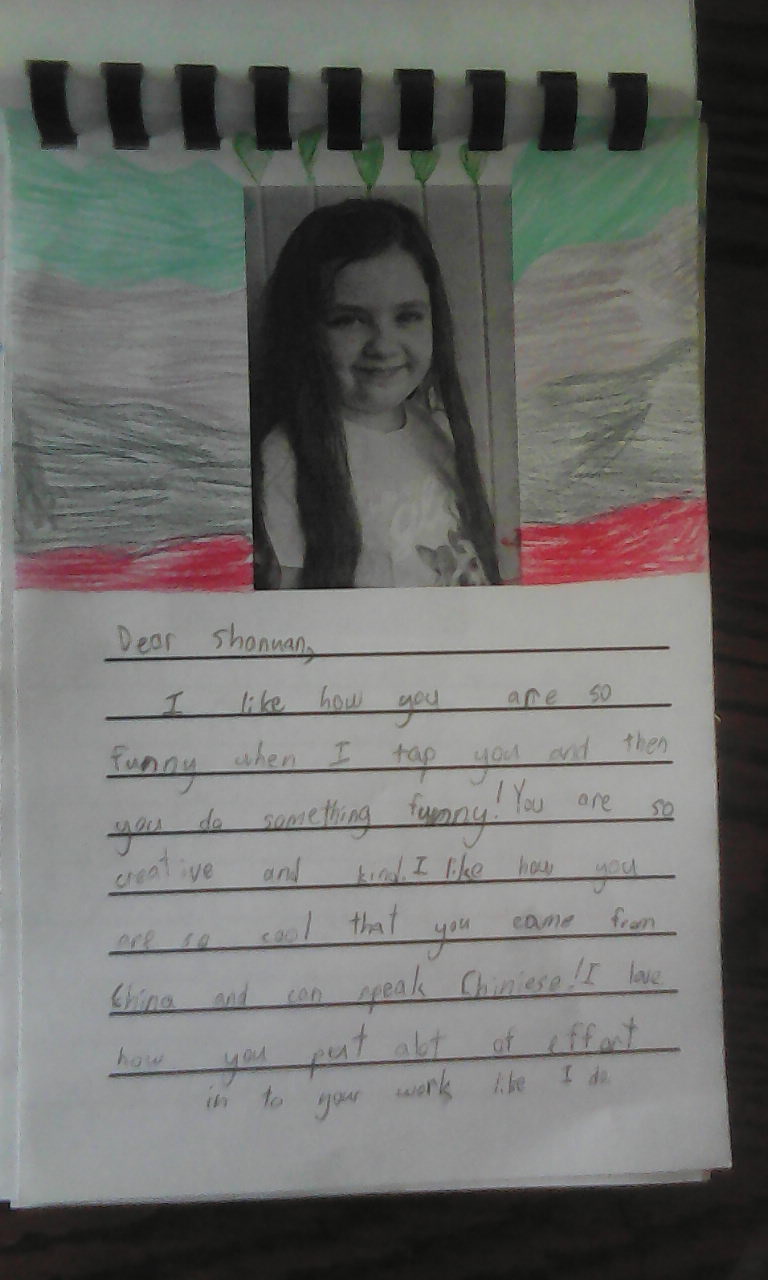 Dear Shonuan,
I like how you are so
funny when I tap you and then
you do something funny! You are so
creative and kind. I like how you
are so cool that you came from
China and can speak Chiniese! I love
how you put alot of effort
in to your work like I do